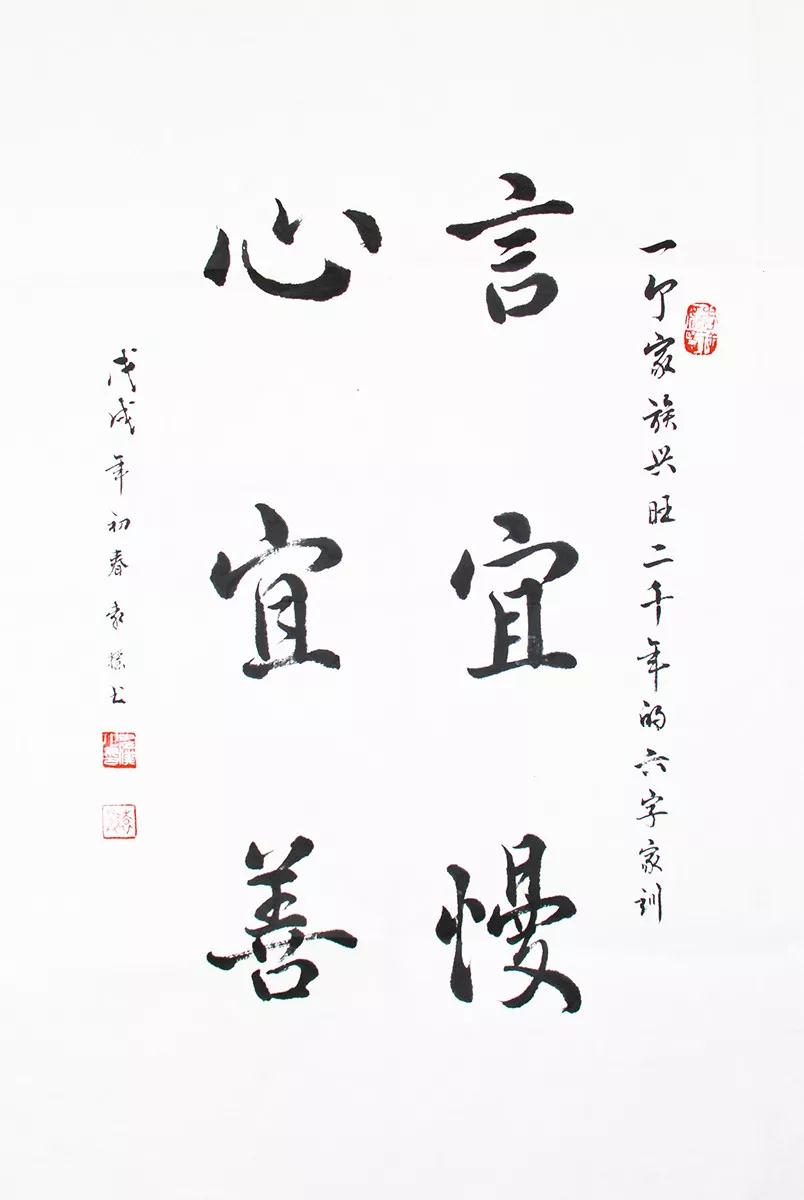 一个家族兴旺二千年的六字家训
言宜慢
心宜善
戊戌年初春袁书